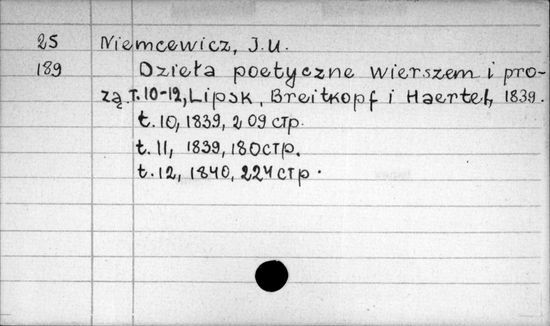 25 Niemcewicz, J.U.
189 Dzieła poetyczne wierszem i pro-
zą. T. 10-12, Lipsk, Breitkopf i Haertel, 1839.
t. 10, 1839, 209 стр.
t. 11, 1839, 180 стр.
t. 12, 1840, 224 стр.